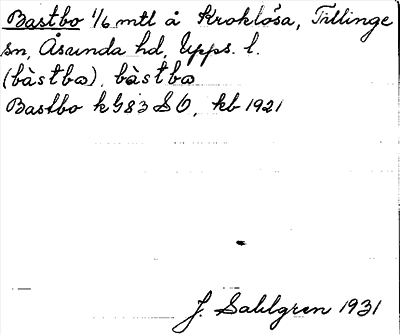 Bastbo 1/6 mtl å Kroklösa, Tillinge
sn, Åsunda hd, Upps. l.
(bàstbω), bàstbω
Bastbo k G83 SO, kb 1921
J. Sahlgren 1931